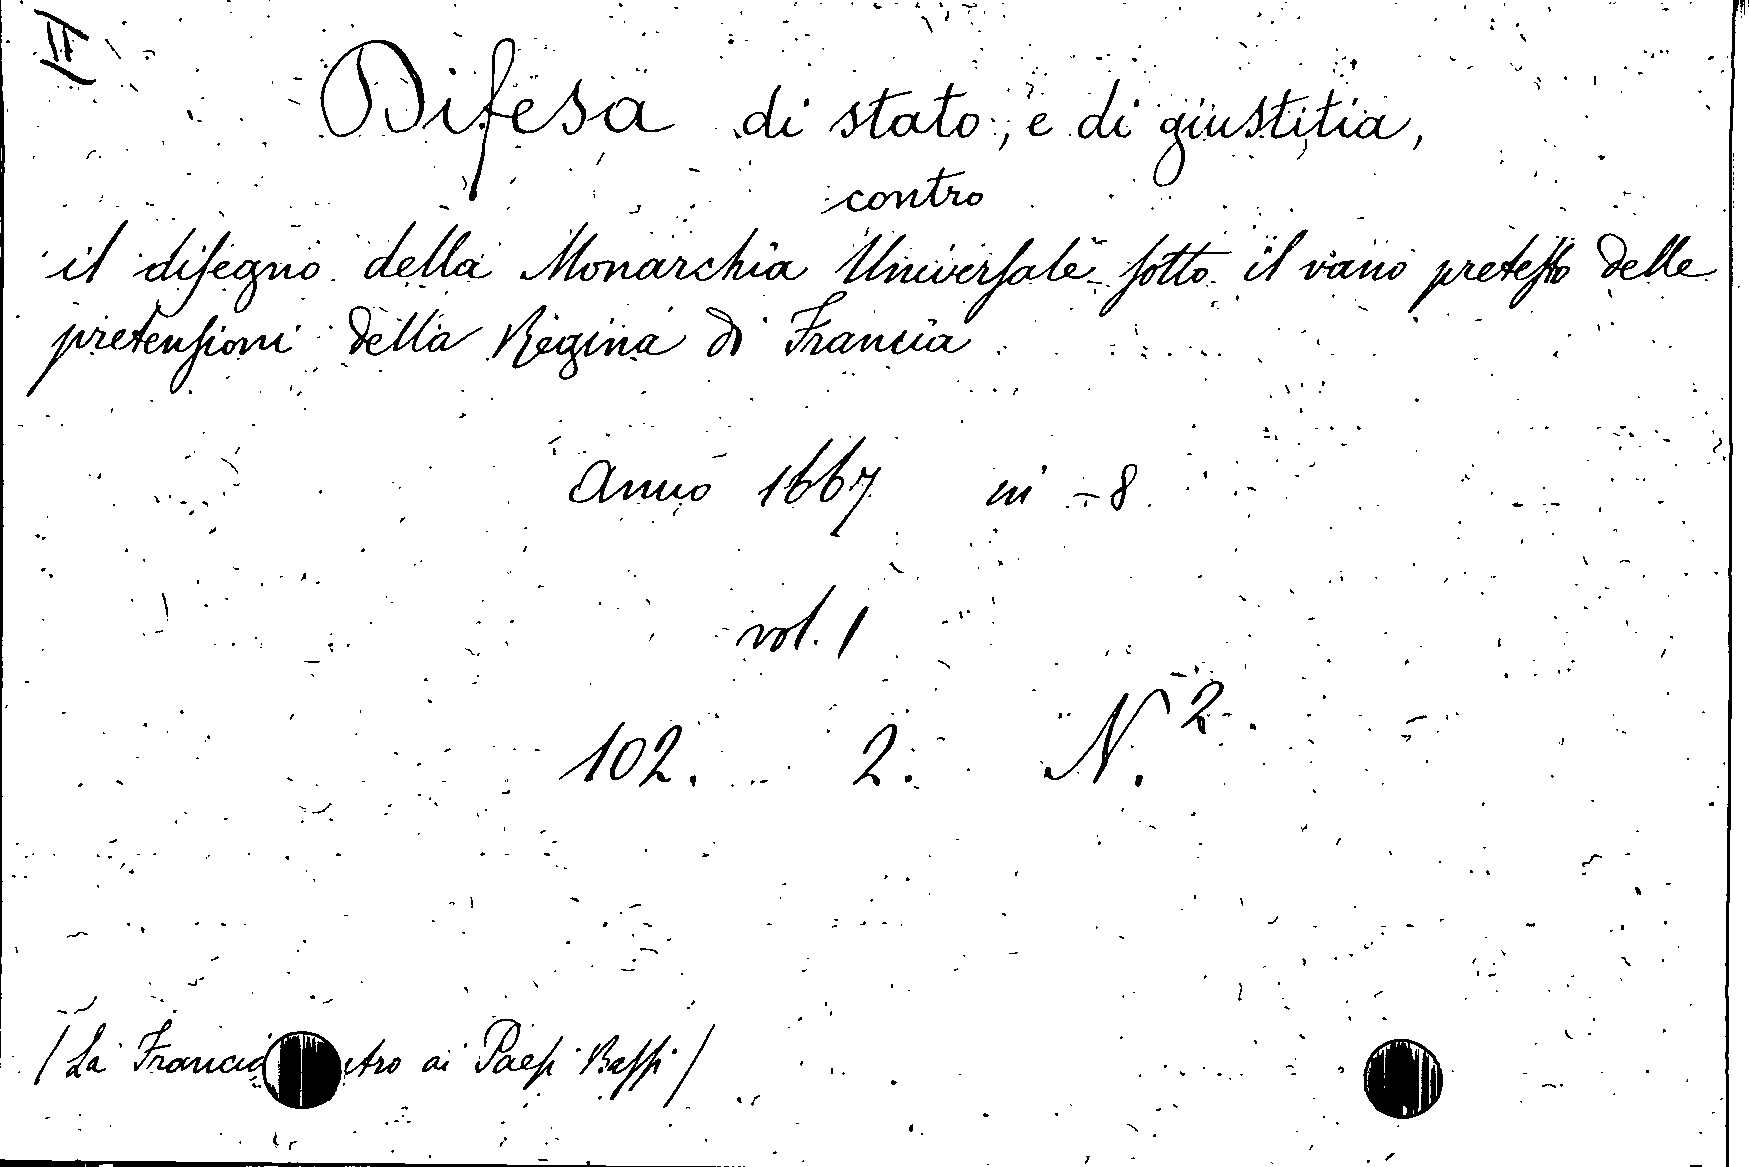 II
Difesa di stato, e di giustitia,
contro
il diſegno della Monarchia Univerſale ſotto il vano preteſto delle
pretenſioni della Regina di Francia
Anno 1667 in -8
vol. 1
102. 2. N. 2.
/La Francia ai Paeſi Baſſi/